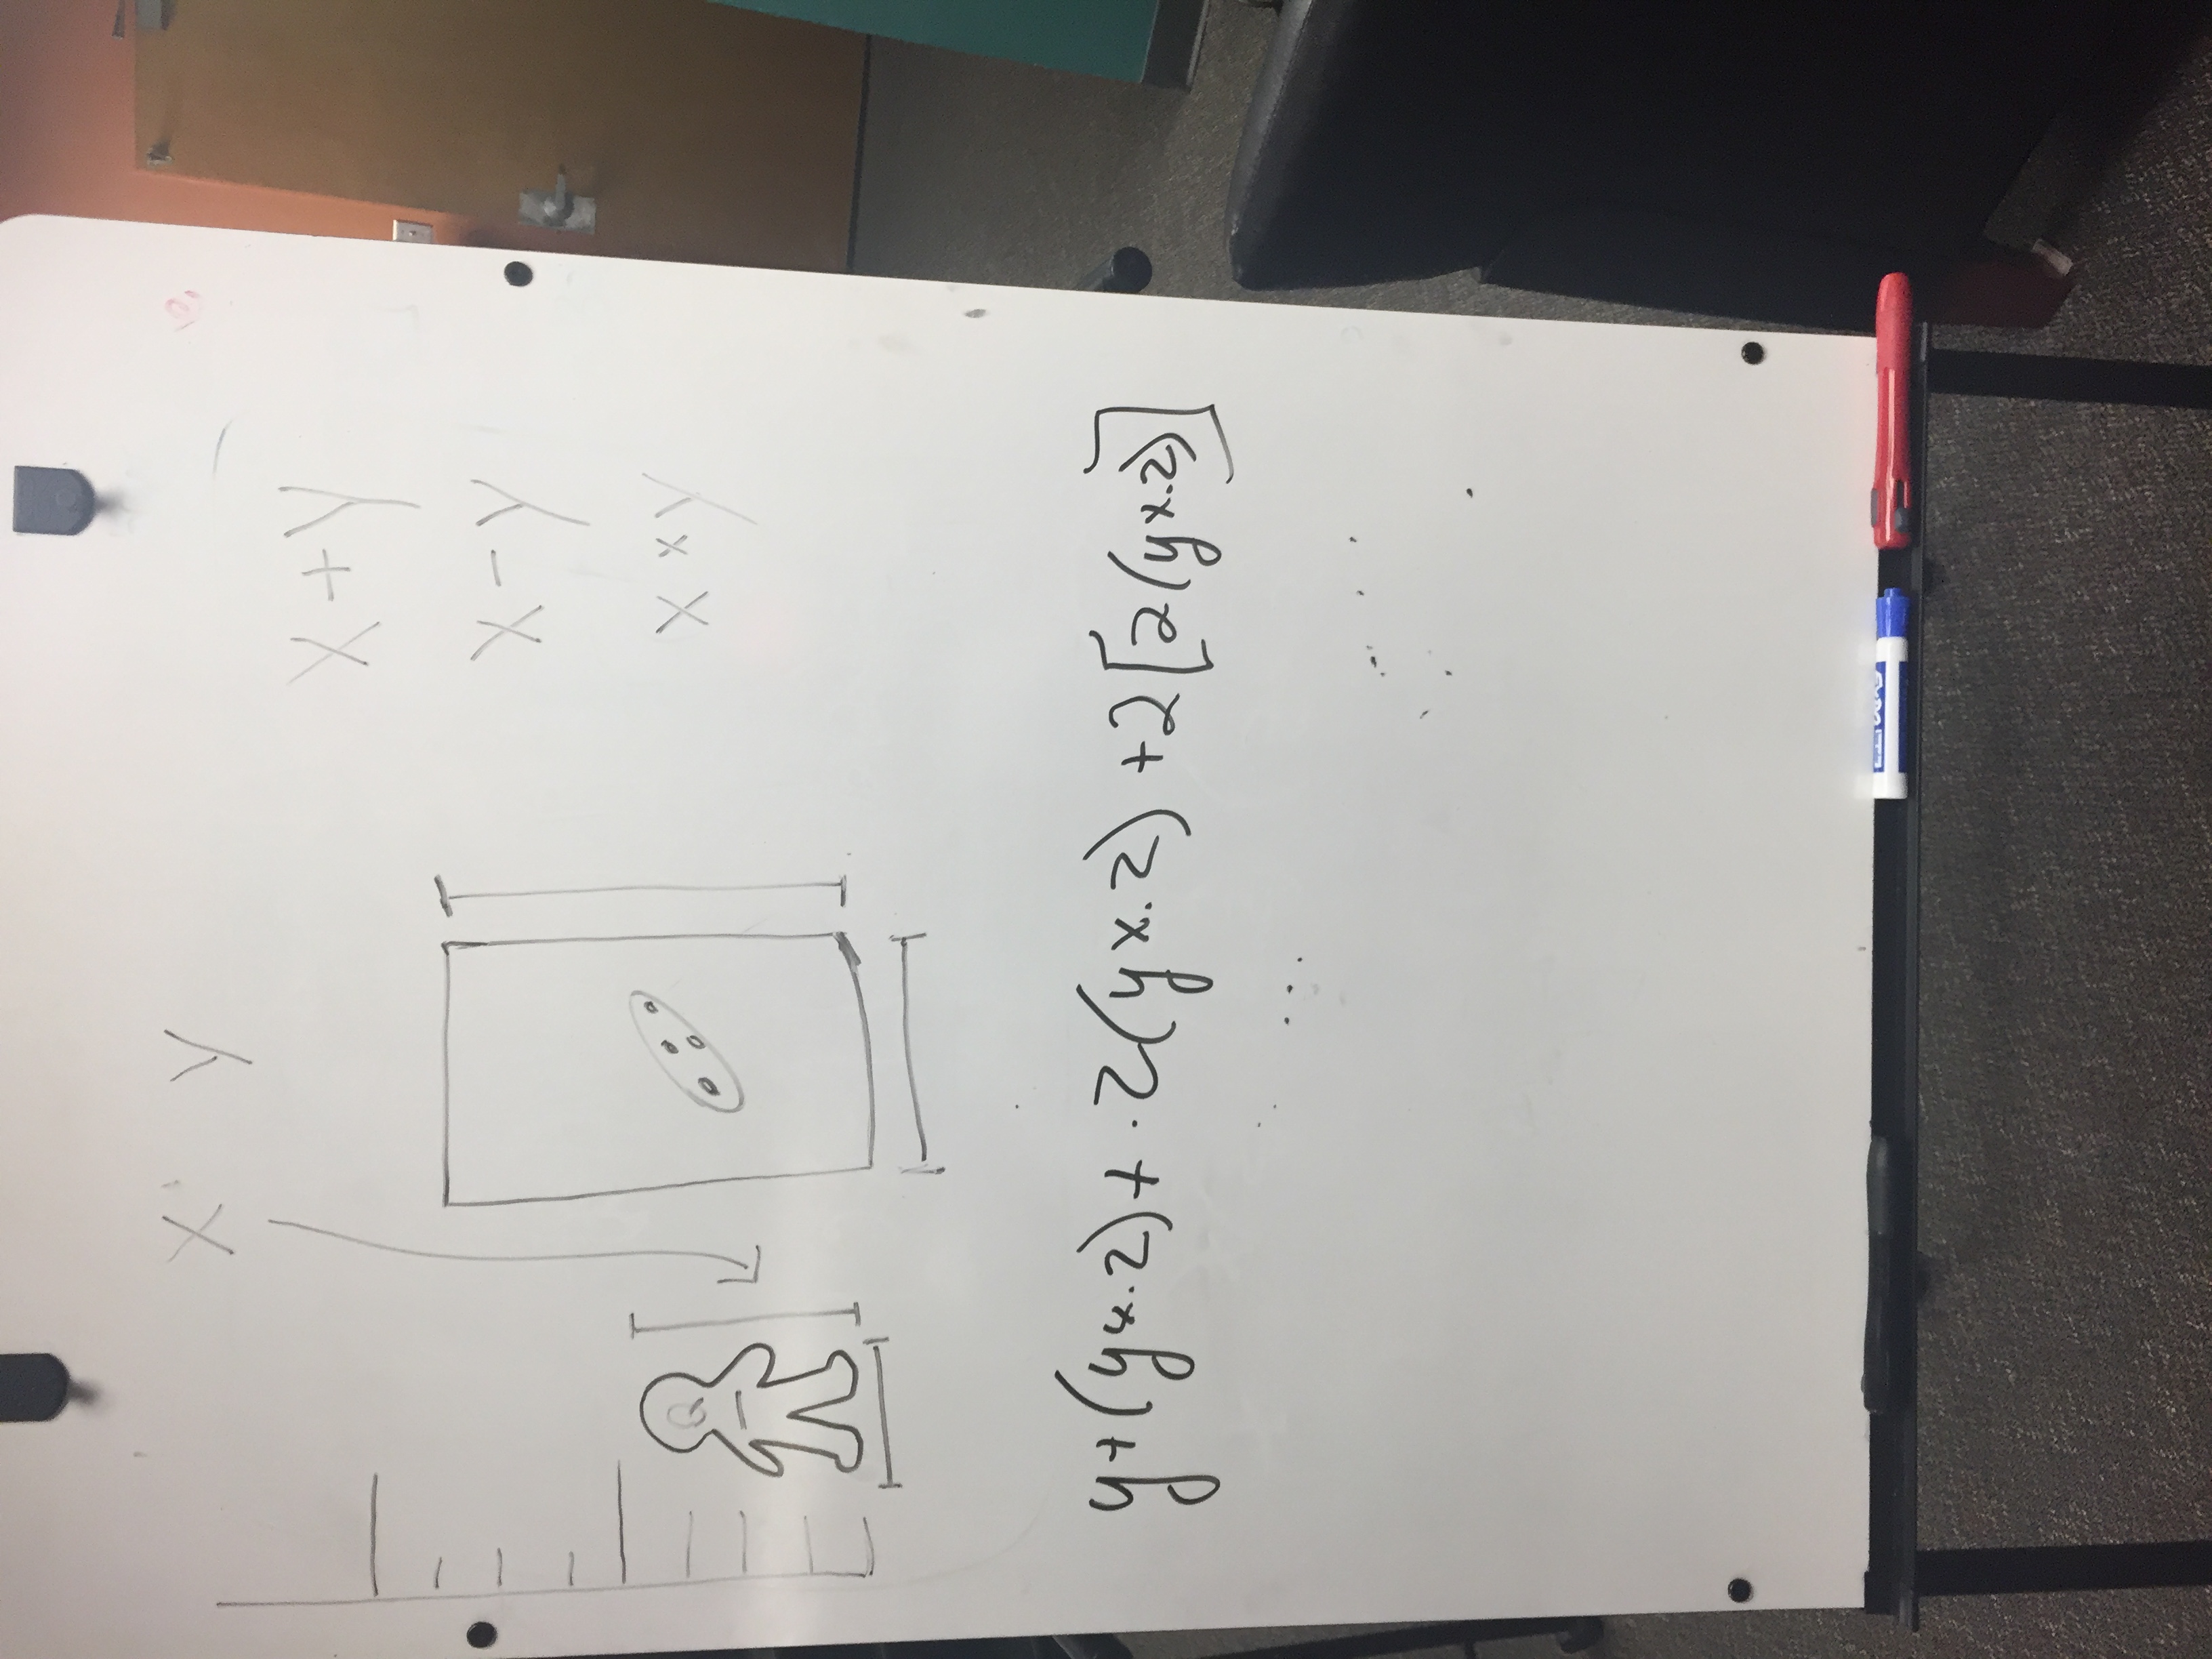 X Y
X + Y
X - Y
X × Y
y+(y×.2)+ .2(y×.2) +2[2(y×.2)]